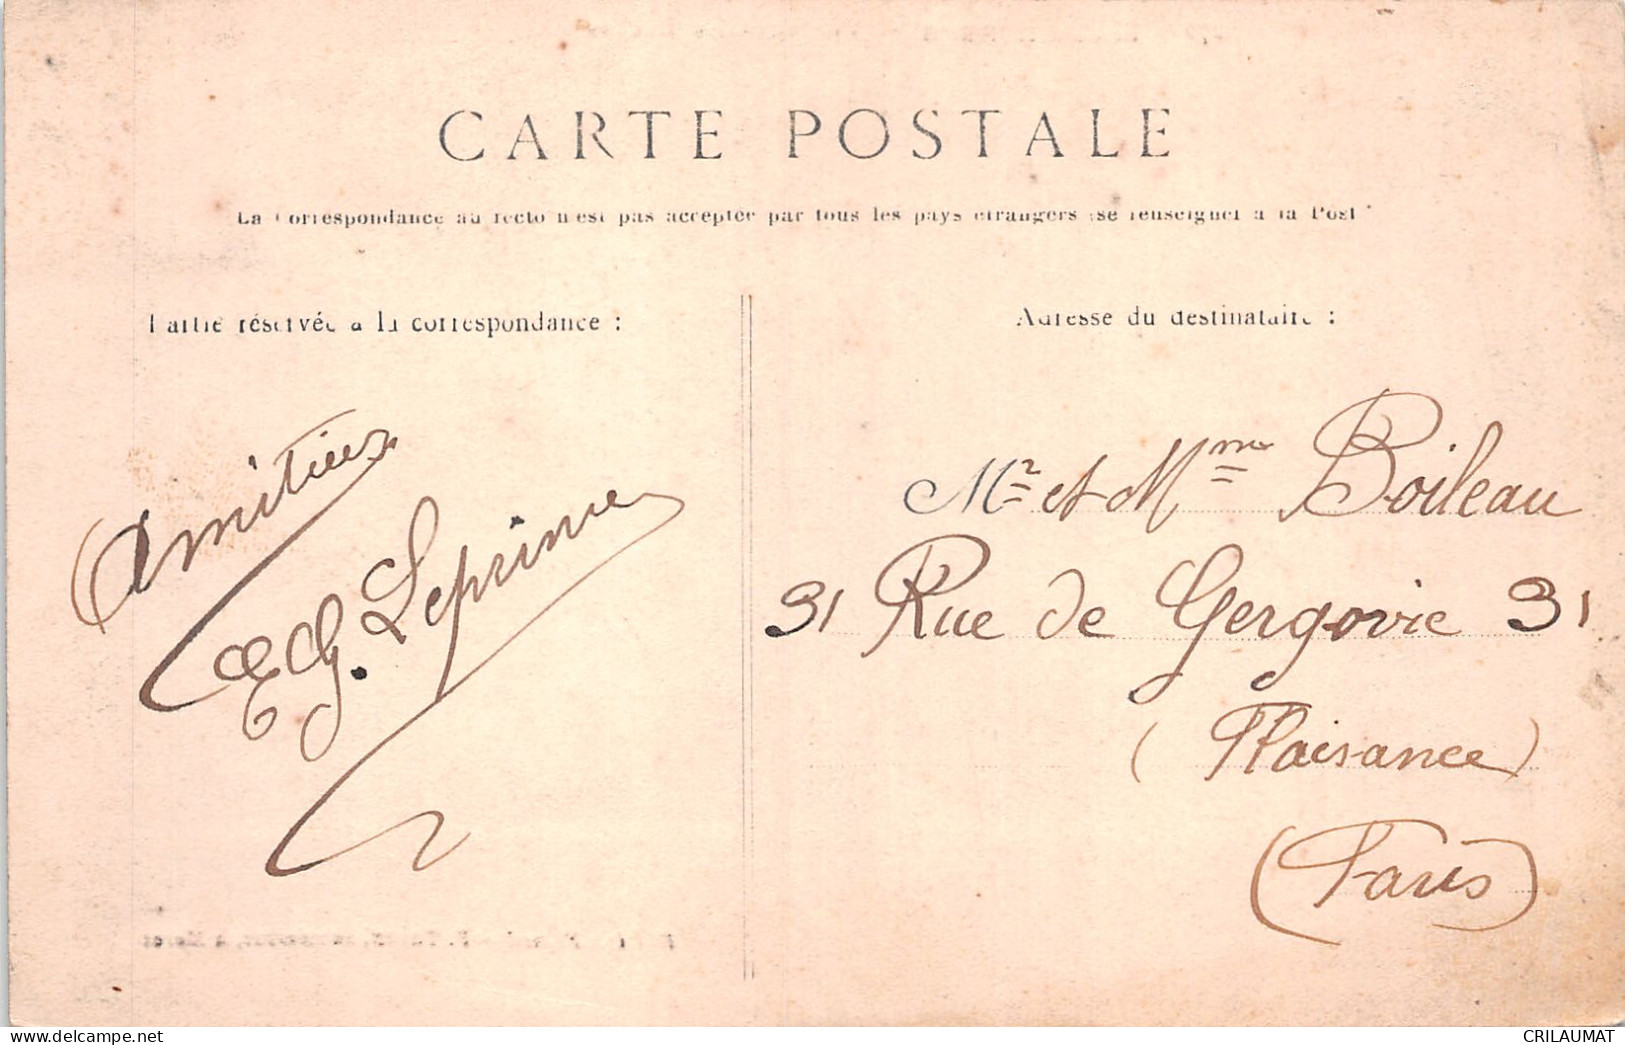 CARTE POSTALE
La Correspondance au recto n'est pas acceptée par tous les pays étrangers (se renseigner à la Post
Partie réservée à la correspondance :
Adresse du destinataire :
Amitiés
EG. Leprince
Mr et Mme Boileau
31 Rue de Gergovie 31
(Plaisance)
(Paris)
www.delcampe.net
CRILAUMAT